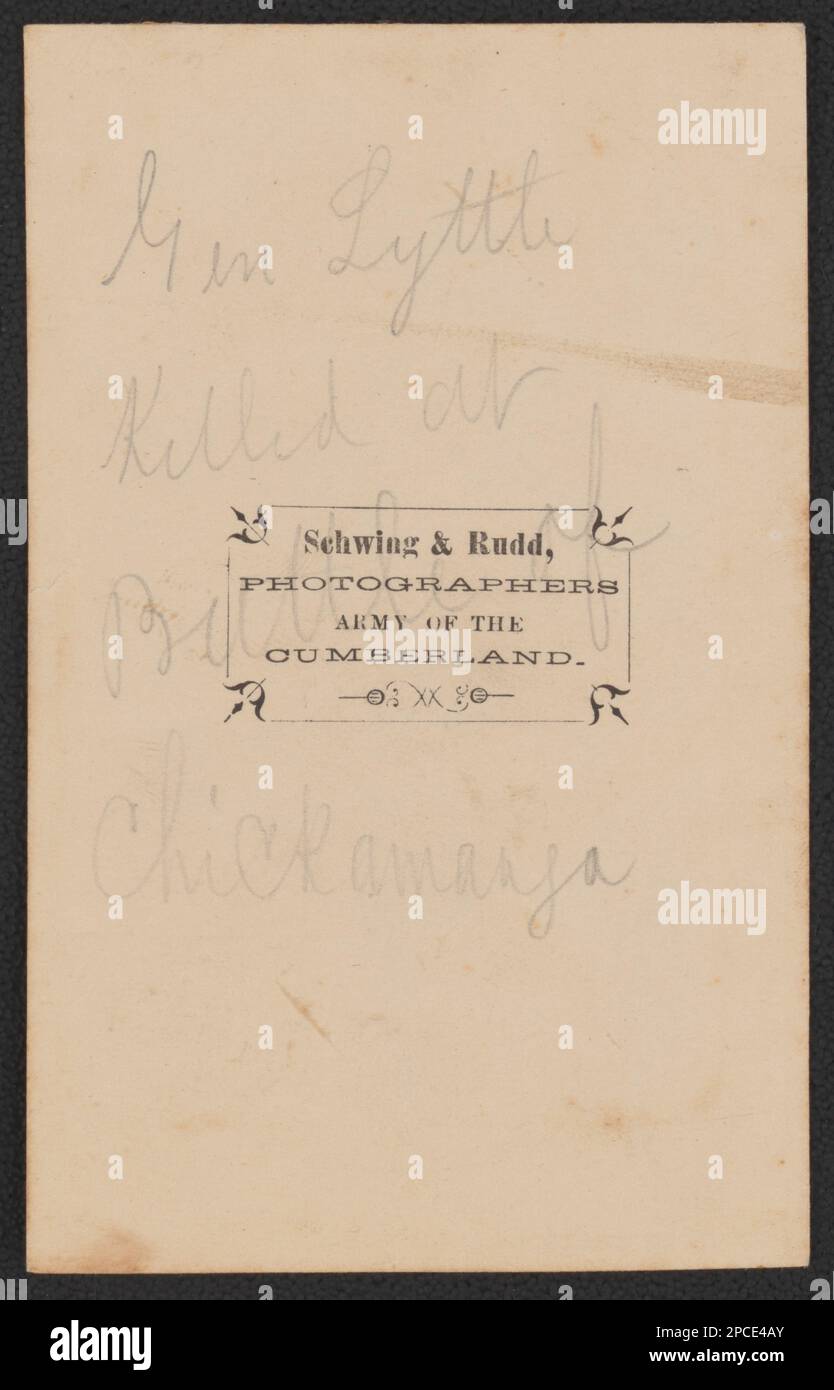 Gen Lyttle
Killed at
Battle of
Schwing & Rudd,
PHOTOGRAPHERS
ARMY OF THE
CUMBERLAND.
Chickamauga
a alamy
alamy
Image ID: 2PCE4AY
www.alamy.com